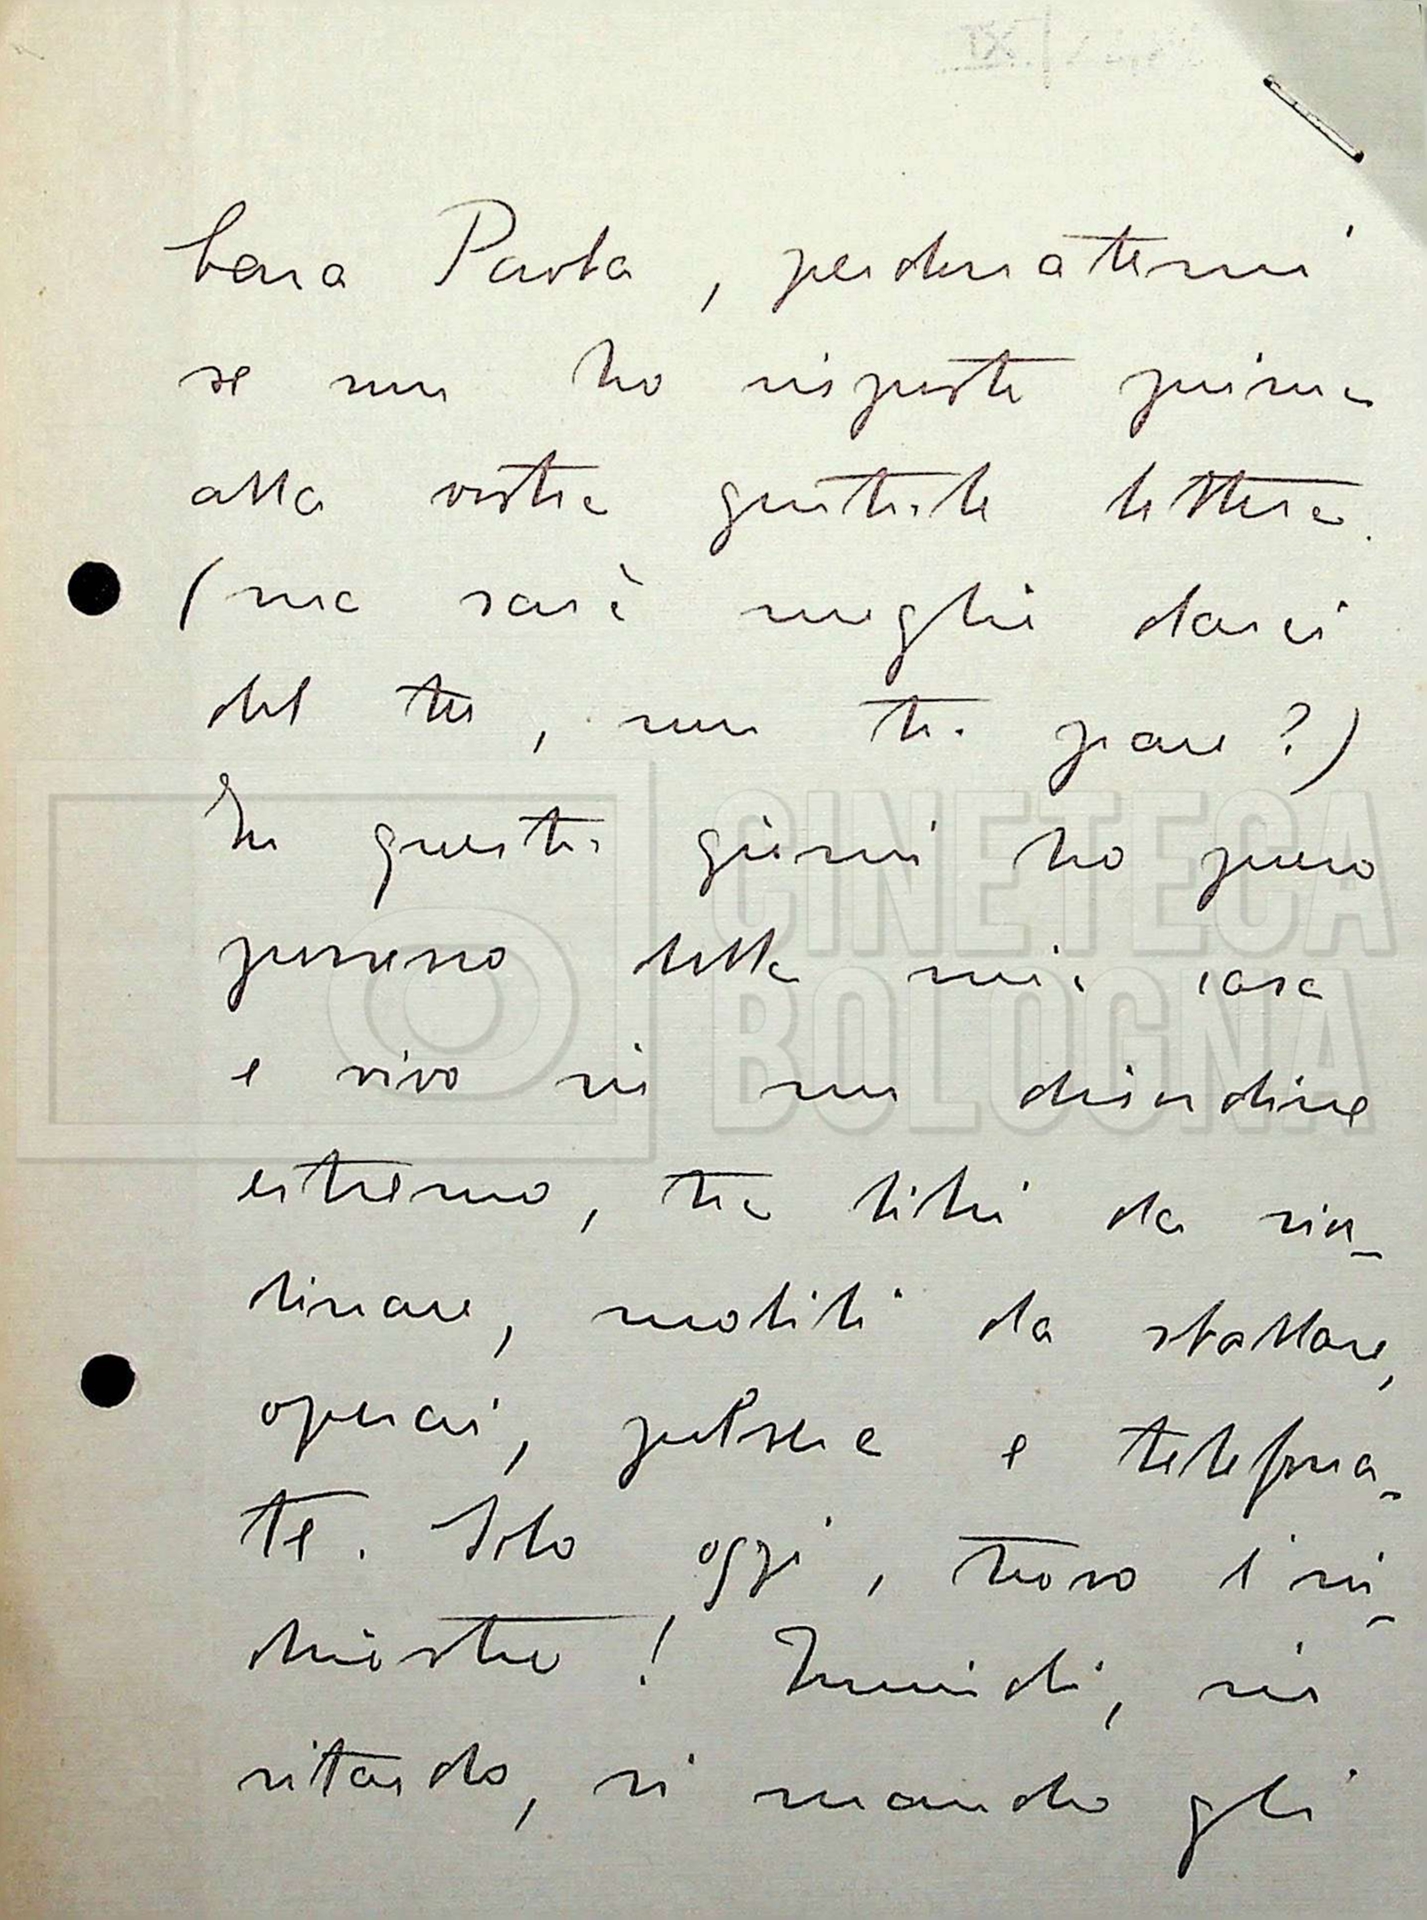 Cara Paola, perdonatemi
se non ho risposto prima
alla vostra gentile lettera.
(ma sarà meglio darci
del tu, non ti pare?)
In questi giorni ho preso
possesso della mia casa
e vivo in un disordine
estremo, tra libri da rior-
dinare, mobili da sballare,
operai, polvere e telefona-
te. Solo oggi, trovo l'in-
chiostro! Quindi, in
ritardo, vi mando gli
CINETECA
BOLOGNA